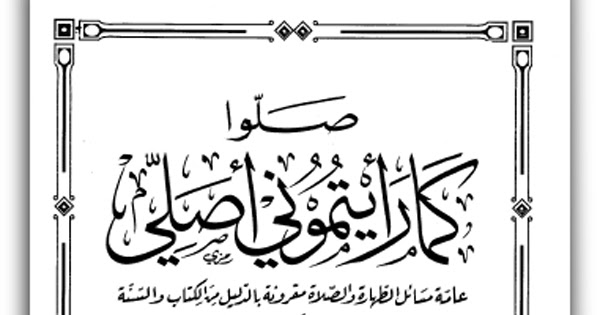 صلّوا
كما رأيتموني أصلّي
عامة مسائل الطهارة والصلاة مقرونة بالدليل من الكتاب والسنّة